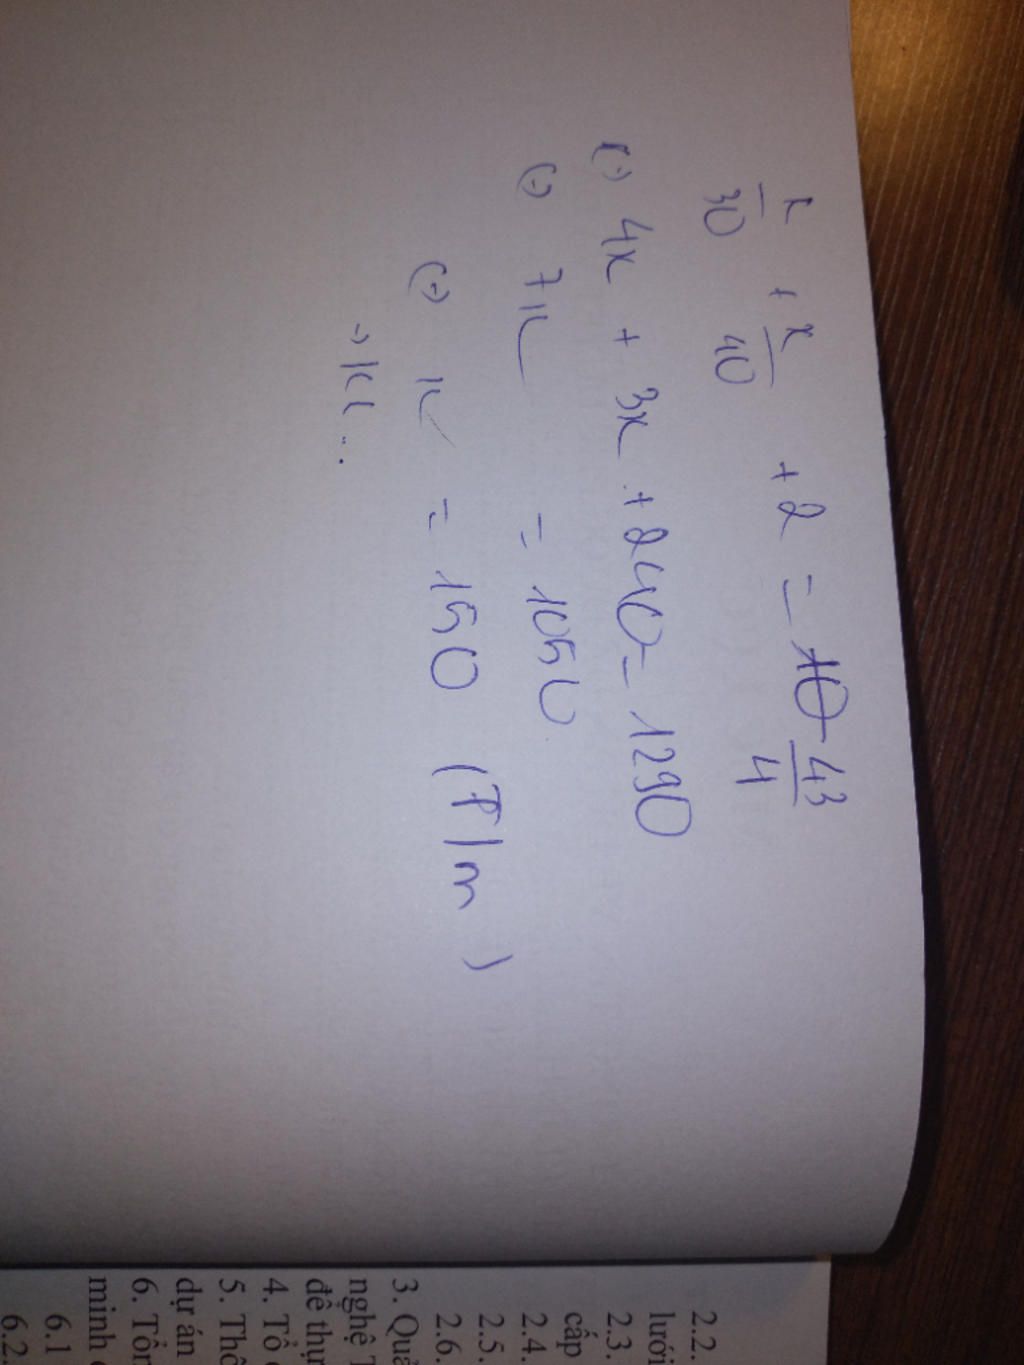 x/30 + x/40 + 2 = 43/4
(-) 4x + 3x + 240 = 1290
(-) 7x = 1050
(-) x = 150 (T/m)
-) KL...
2.2.
lưới
2.3.
cấp
2.4.
2.5.
2.6.
3. Quả
nghệ T
đề thự
4. Tổ
5. Thô
dự án
6. Tổn
minh
6.1
6.2.